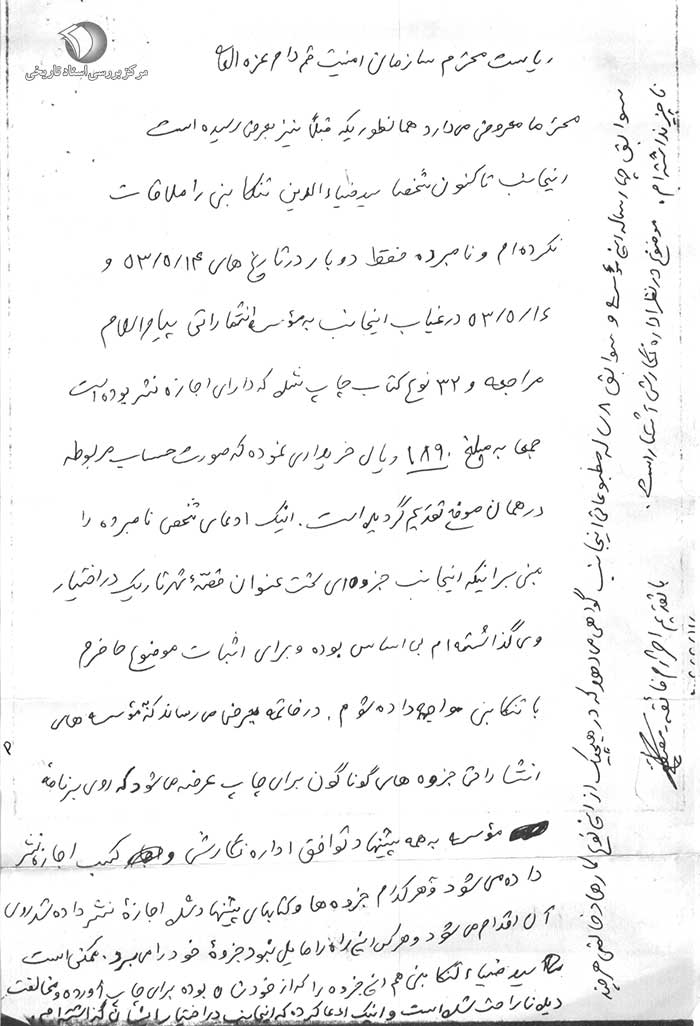 مرکز بررسی اسناد تاریخی
ریاست محترم سازمان امنیت قم دام عزه العالی
محترما معروض می‌دارد همانطوریکه قبلاً نیز بعرض رسیده است
اینجانب تاکنون شخصا سید ضیاءالدین تنکابنی را ملاقات
نکرده‌ام و نامبرده فقط دو بار در تاریخ های ۵۳/۵/۱۴ و
۵۳/۵/۱۶ در غیاب اینجانب به مؤسسه انتشاراتی پیام اسلام
مراجعه و ۳۲ نوع کتاب چاپ شده که دارای اجازه نشر بوده است
جمعا به مبلغ ۱۸۹۰ ریال خریداری نموده که صورت حساب مربوطه
در همان موقع تقدیم گردیده است. اینک ادعای شخص نامبرده را
مبنی بر اینکه اینجانب جزوه‌ای تحت عنوان قصّهٔ شهر تاریک در اختیار
وی گذاشته‌ام بی اساس بوده و برای اثبات موضوع حاضرم
با تنکابنی مواجهه داده شوم. در خاتمه بعرض می رساند که مؤسسه های
انتشاراتی جزوه های گوناگون برای چاپ عرضه می‌شود که روی برنامهٔ
مؤسسه به همه پیشنهاد توافق اداره نگارش و کسب اجازه نشر
داده می شود و هر کدام جزوه ها و کتابهای پیشنهاد شده اجازهٔ نشر داده شد روی
آن اقدام می شود و هر کس این راه را مایل نبود جزوهٔ خود را می برد. ممکن است
سید ضیاء تنکابنی هم این جزوه را که از خودشان بوده برای چاپ آورده و مخالفت
دیده ناراحت شده است و اینک ادعا کرده که اینجانب در اختیار ایشان گذاشته‌ام.
سوابق چهار ساله این مؤسسه و سوابق ۸ ساله مطبوعاتی اینجانب گواهی می‌دهد که در هیچیک از این نوع کارها دخالتی هر چند
ناچیز نداشته‌ام. موضوع در نظر اداره نگارش آشکار است.
با تقدیم احترام فائقه